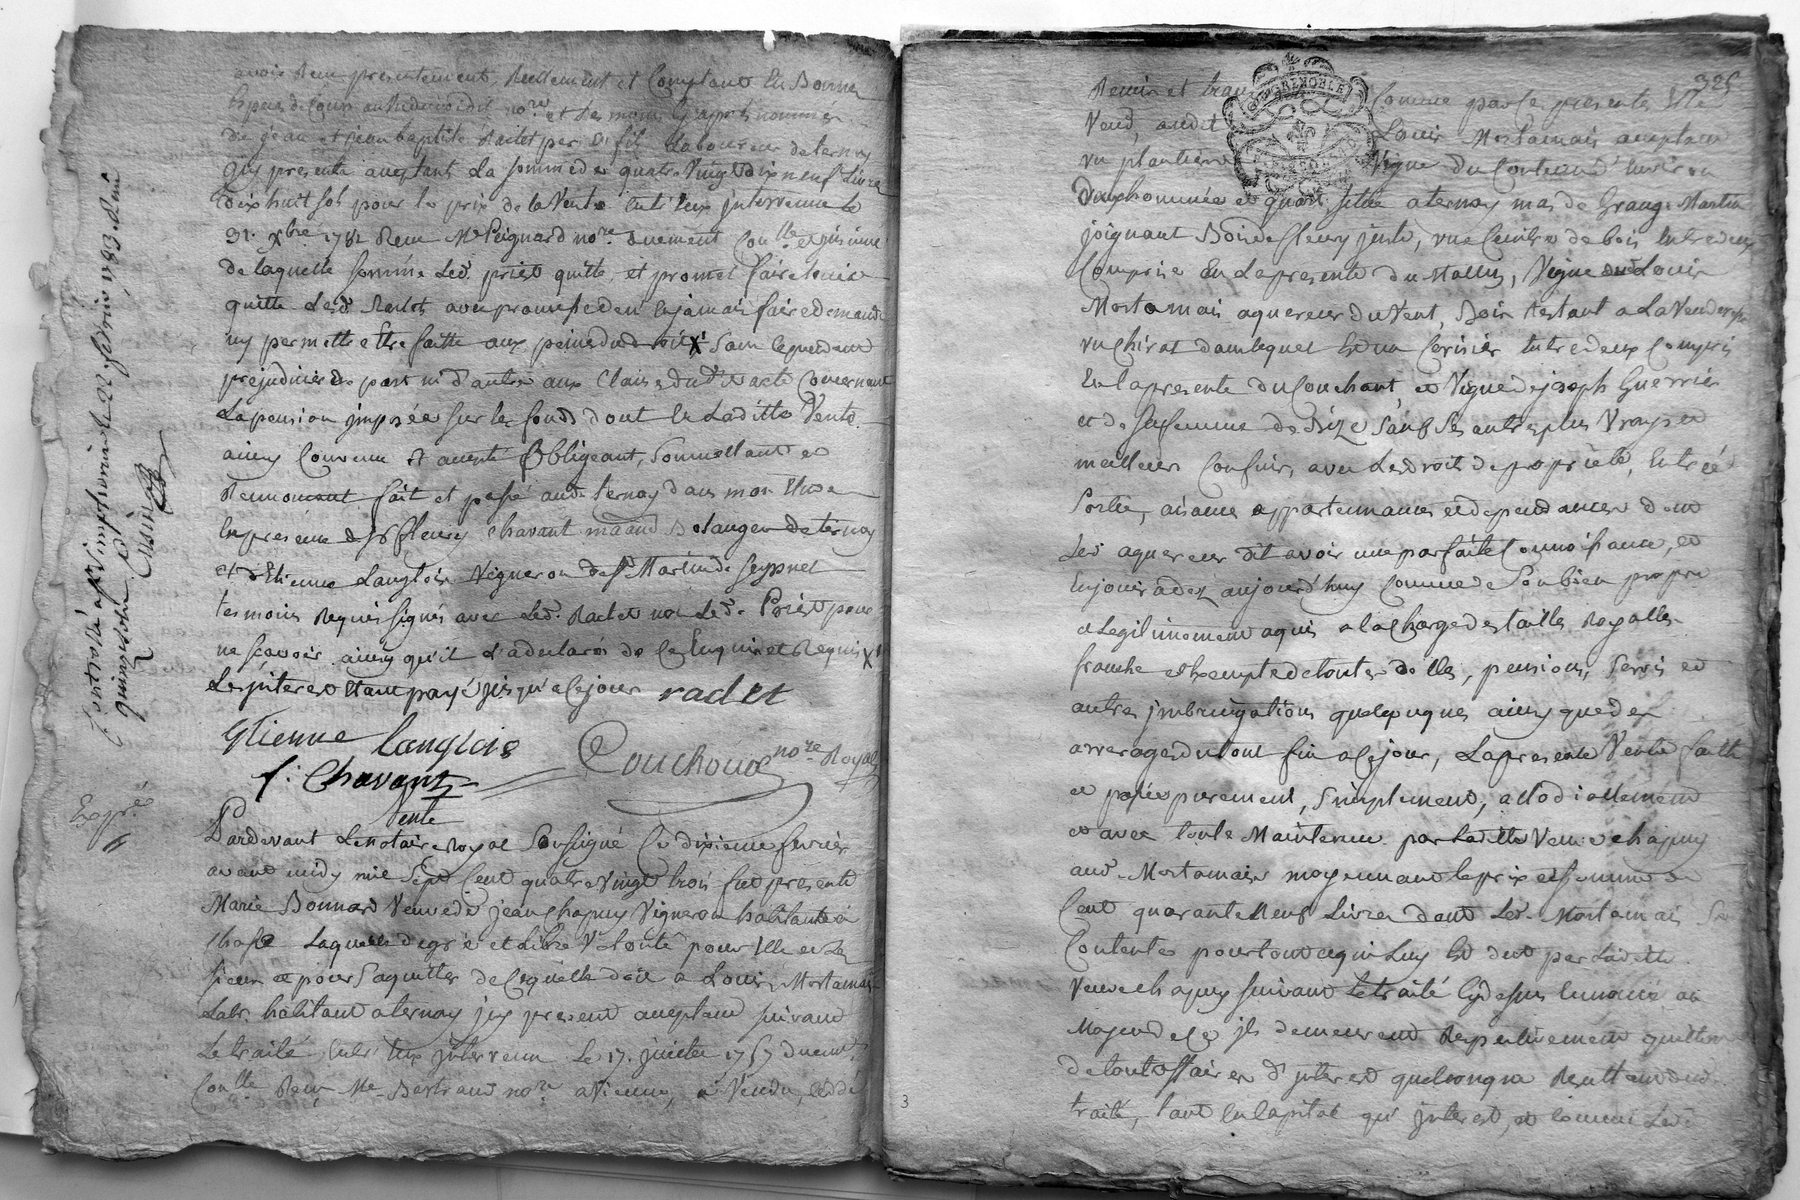 avoir Reçu presentement, Reellement et Comptant En Bonnes
Especes de Cours au Vû de moidit no.re et des temoins Cy apres nommés
de jean et jean baptiste Radet per & fil Laboureur de ternay
Cy presents aceptant La somme de quatre Vingt dix neuf Livres
dix huit sols pour le prix de la Vente Entr'Eux jntervenue le
31. xbre 1782 Reçu Me Peignard no.re duement Con.lle
de laquelle somme Led. quitte et promet faire tenir
quitte Led. Radet avec promesse de n'en jamais faire demande
ny permettre Etre faitte aux peines du droit X Sans Cependant
prejudicier de part ni d'autre aux Clauses dud. acte Concernant
La pension jmposée Sur les fonds dont En Laditte Vente
ainsy Convenu Et accepté Obligeant, Soumettant et
Renoncant fait et passé aud. ternay dans mon Etude
En presence de Sr fleury Chavant md Bolanger de ternay
et d'Etienne Langlois Vigneron de St Martin de Seyssuel
temoins Requis signés avec Led. Radet non Led. pour
ne sçavoir ainsy qu'il l'a declaré de Ce Enquis et Requis X
Les jnterets Etant payé jusqu'a Ce jour radet
Etienne langlois
f. Chavant Couchoud no.re Royal
Controlé à St Simphorien le 22 fevrier 1783. Reçu
quinze sols Cusin
Expé.
Vente
Pardevant Le Notaire Royal Soussigné Ce dixieme fevrier
avant midy mil Sept Cent quatre Vingt trois fut presente
Marie Bonnard Veuve de jean Chapuy Vigneron habitante à
Chasse Laquelle de gré et Libre Volonté pour Elle et les
siens et pour S'aquitter de Ce qu'elle doit a Louis Mortamais
Labr. habitant a ternay jcy present aceptant suivant
Le traité Entr'Eux jntervenu Le 17. juillet 1757 duemt.
Con.lle Reçu Me Bertrand no.re a Vienne, a Vendu, Cedé
325
GEN. GRENOBLE
Remis et trans Comme par Ces presentes Elle
Vend, audit Louis Mortamais aceptant
un plantier Vigne du Contenu d'Environ
Deux hommées et quart, située a ternay mas de Grange Martin
joignant Bois de fleury juste, une Ceintre de bois Entre deux
Comprise En La presente du matin, Vigne dud. Louis
Mortamais aquereur du Vent, Bois Restant a La Venderesse
un Chirat dans lequel Est un Cerisier Entre deux Compris
En la presente du Couchant, et Vigne de joseph Guerrier
et de sa femme de Bize Sauf Ses autres plus Vrays et
meilleurs Confins, avec Les droits de propriété, Entrée
Sortie, aisances appartenances et dependances dont
Led. aquereur dit avoir une parfaite Connoissance, et
En jouir a dez aujourd'huy Comme de Son bien propre
et Legitimement aquis a la Charge des tailles Royalles
franche et Exempte de toutes dettes, pensions, Servis et
autres jmbrigations quelquonques ainsy que des
arrerages du tout fin a Ce jour, La presente Vente faitte
et passée purement, Simplement, allodiallement
et avec toute Maintenue par Laditte Veuve Chapuy
aud. Mortamais moyennant le prix et somme de
Cent quarante Neuf Livres dont Led. Mortamais Se
Contente pour tout ce qui Luy Est dut par Laditte
Veuve Chapuy Suivant Le traité Cydessus Enoncé au
Moyen de Ce jls demeurent Respectivement quittes
de toutes affaires d'jnteret quelconque Resultant dud.
traité, tant En Capital qu' jnteret, et comme Led.
3